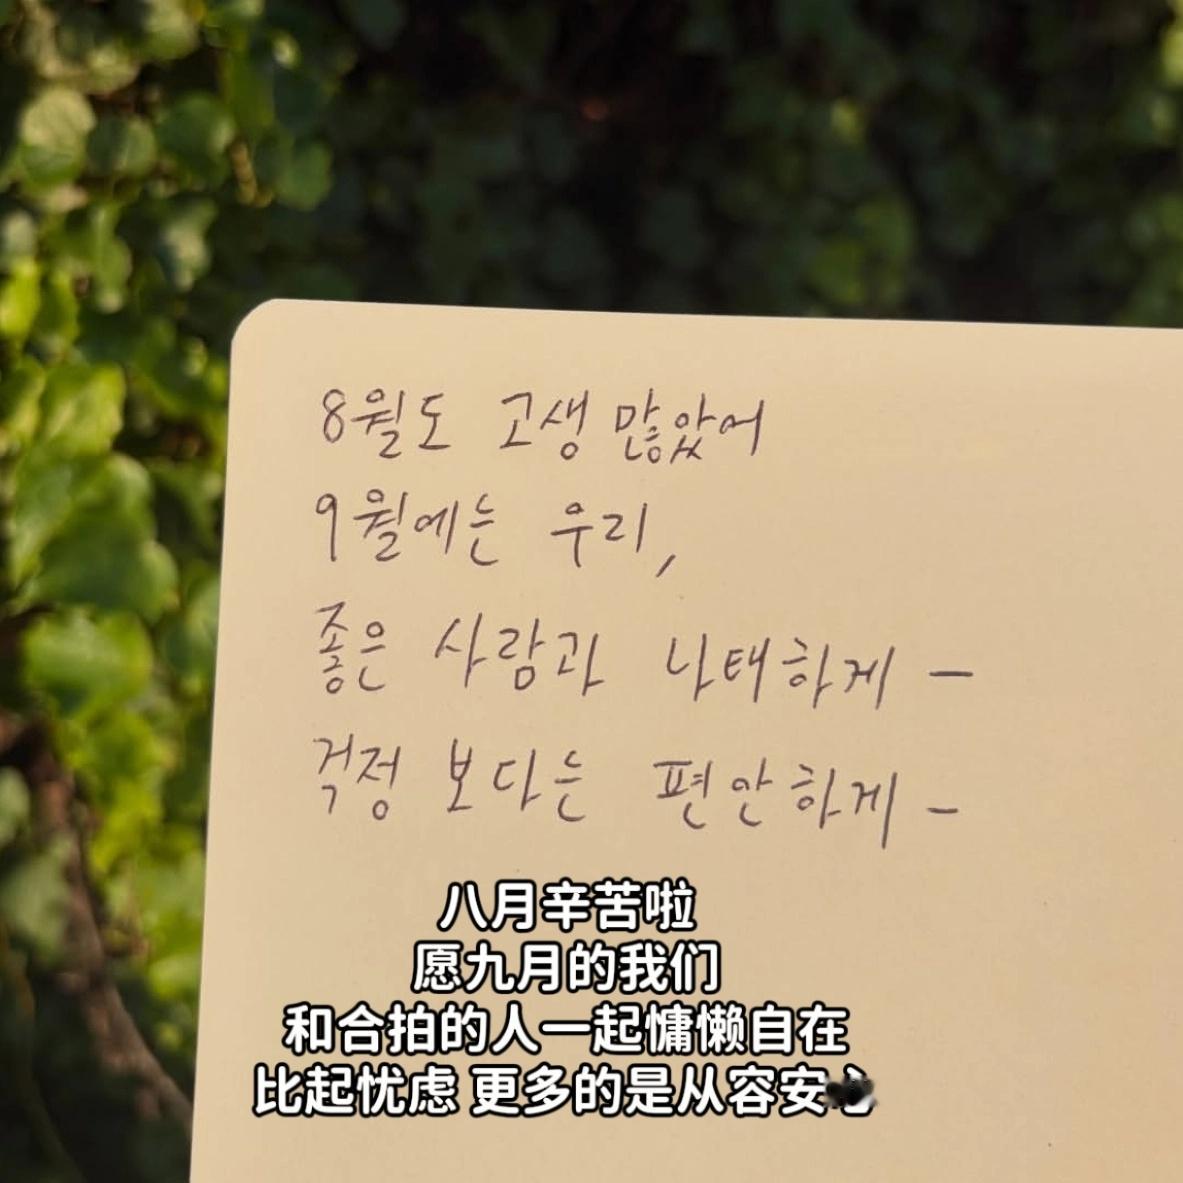 8월도 고생 많았어
9월에는 우리,
좋은 사람과 나태하게 -
걱정 보다는 편안하게 -
八月辛苦啦
愿九月的我们
和合拍的人一起慵懒自在
比起忧虑 更多的是从容安心